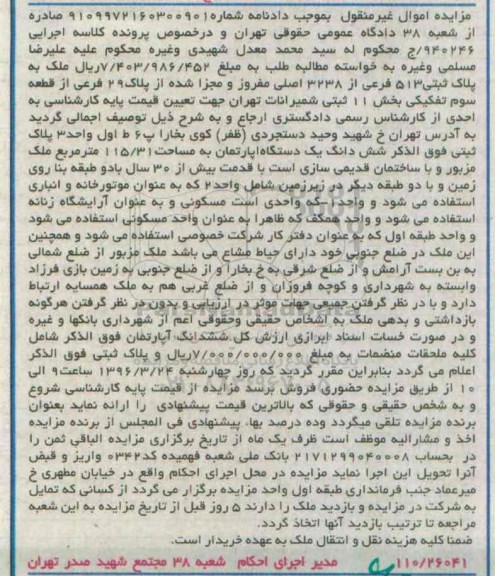 مزایده اموال غیرمنقول بموجب دادنامه شماره ۹۱۰۹۹۷۲۱۶۰۳۰۰۹۰۱ صادره
از شعبه ۳۸ دادگاه عمومی حقوقی تهران و درخصوص پرونده کلاسه اجرایی
۹۴۰۲۴۶/ج محکوم له سید محمد معدل شهیدی وغیره محکوم علیه علیرضا
مسلمی وغیره به خواسته مطالبه طلب به مبلغ ۷/۴۰۳/۹۸۶/۴۵۲ریال ملک به
پلاک ثبتی۵۱۳ فرعی از ۳۲۳۸ اصلی مفروز و مجزا شده از پلاک۲۹ فرعی از قطعه
سوم تفکیکی بخش ۱۱ ثبتی شمیرانات تهران جهت تعیین قیمت پایه کارشناسی به
احدی از کارشناس رسمی دادگستری ارجاع و به شرح ذیل توصیف اجمالی گردید
به آدرس تهران خ شهید وحید دستجردی (ظفر) کوی بخارا پ۶ ط اول واحد۳ پلاک
ثبتی فوق الذکر شش دانگ یک دستگاه‌آپارتمان به مساحت۱۱۵/۳۱ مترمربع ملک
مزبور و با ساختمان قدیمی سازی است با قدمت بیش از ۳۰ سال بادو طبقه بنا روی
زمین و با دو طبقه دیگر در زیرزمین شامل واحد۲ که به عنوان موتورخانه و انباری
استفاده می شود و واحد۱ که واحدی است مسکونی و به عنوان آرایشگاه زنانه
استفاده می شود و واحد همکف که ظاهرا به عنوان واحد مسکونی استفاده می شود
و واحد طبقه اول که به عنوان دفتر کار شرکت خصوصی استفاده می شود و همچنین
این ملک در ضلع جنوبی خود دارای حیاط مشاع می باشد ملک مزبور از ضلع شمالی
به بن بست آرامش و از ضلع شرقی به خ بخارا و از ضلع جنوبی به زمین بازی فرزاد
وابسته به شهرداری و کوچه فروزان و از ضلع غربی هم به ملک همسایه ارتباط
دارد و با در نظر گرفتن جمیع جهات موثر در ارزیابی و بدون در نظر گرفتن هرگونه
بازداشتی و بدهی ملک به اشخاص حقیقی وحقوقی اعم از شهرداری بانکها و غیره
و در صورت خسات اسناد ابرازی ارزش کل ششدانگ آپارتمان فوق الذکر شامل
کلیه ملحقات منضمات به مبلغ ۷/۰۰۰/۰۰۰/۰۰۰ریال و پلاک ثبتی فوق الذکر
اعلام می گردد بنابراین مقرر گردید که روز چهارشنبه ۱۳۹۶/۳/۲۴ ساعت۹ الی
۱۰ از طریق مزایده حضوری فروش برسد مزایده از قیمت پایه کارشناسی شروع
و به شخص حقیقی و حقوقی که بالاترین قیمت پیشنهادی را ارائه نماید بعنوان
برنده مزایده تلقی میگردد وده درصد بها، پیشنهادی فی المجلس از برنده مزایده
اخذ و مشارالیه موظف است ظرف یک ماه از تاریخ برگزاری مزایده الباقی ثمن را
در بحساب ۲۱۷۱۲۹۹۰۴۰۰۰۸ بانک ملی شعبه فهمیده کد۰۳۴۲ واریز و قبض
آنرا تحویل این اجرا نماید مزایده در محل اجرای احکام واقع در خیابان مطهری خ
میرعماد جنب فرمانداری طبقه اول واحد مزایده برگزار می گردد از کسانی که تمایل
به شرکت در مزایده و بازدید ملک را دارند ۵ روز قبل از تاریخ مزایده به این شعبه
مراجعه تا ترتیب بازدید آنها اتخاذ گردد.
ضمنا کلیه هزینه نقل و انتقال ملک به عهده خریدار است.
۱۱۰/۲۶۰۴۱ مدیر اجرای احکام شعبه ۳۸ مجتمع شهید صدر تهران